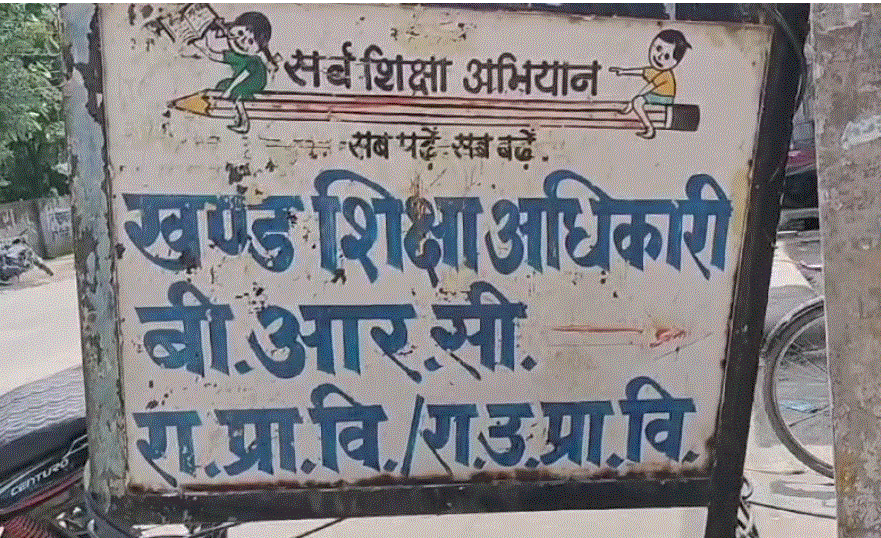 सर्व शिक्षा अभियान
सब पढ़ें सब बढ़ें.
खण्ड शिक्षा अधिकारी
बी.आर.सी.
रा.प्रा.वि./रा.उ.प्रा.वि.
CENTURO